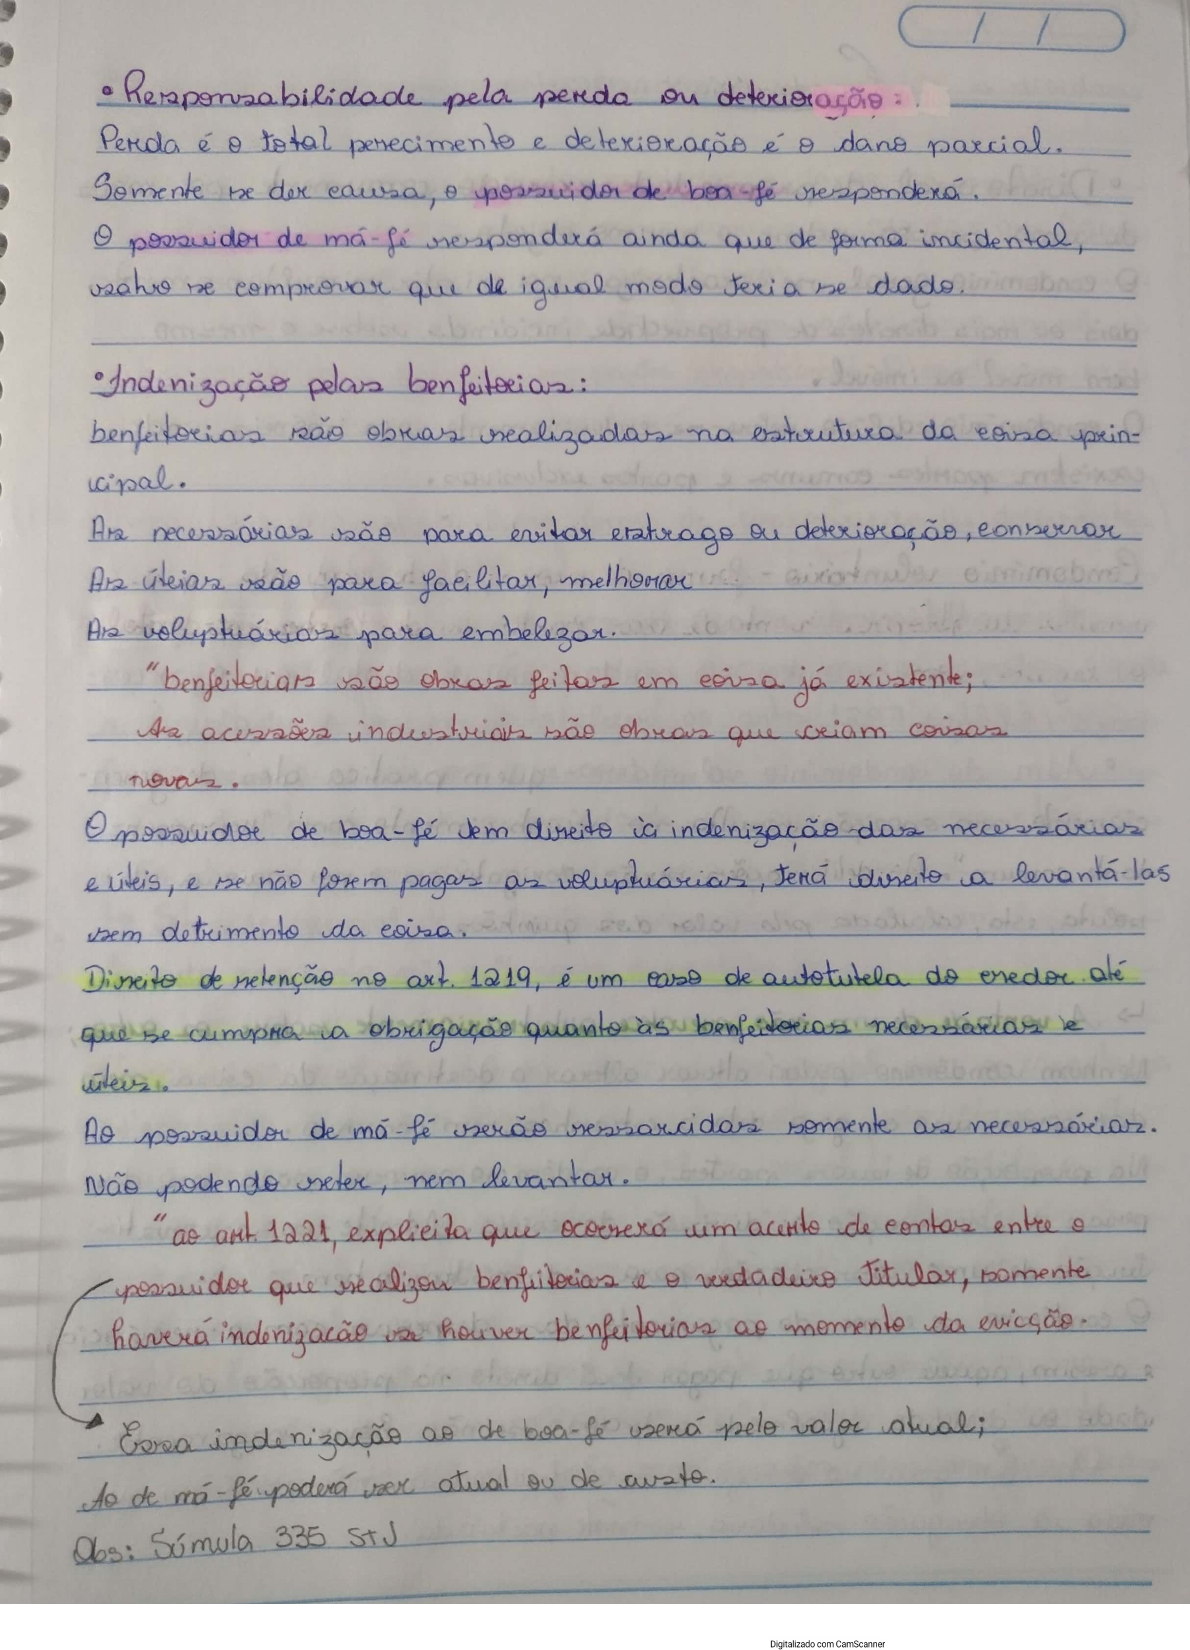 • Responsabilidade pela perda ou deterioração:
Perda é o total perecimento e deterioração é o dano parcial.
Somente se der causa, o possuidor de boa-fé responderá.
O possuidor de má-fé responderá ainda que de forma incidental,
salvo se comprovar que de igual modo teria se dado.
• Indenização pelas benfeitorias:
benfeitorias são obras realizadas na estrutura da coisa prin-
cipal.
As necessárias são para evitar estrago ou deterioração, conservar
As úteias são para facilitar, melhorar
As voluptuárias para embelezar.
"benfeitorias são obras feitas em coisa já existente;
As acessões industriais são obras que criam coisas
novas.
O possuidor de boa-fé tem direito à indenização das necessárias
e úteis, e se não forem pagas as voluptuárias, terá direito a levantá-las
sem detrimento da coisa.
Direito de retenção no art. 1219, é um caso de autotutela do credor até
que se cumpra a obrigação quanto às benfeitorias necessárias e
úteis.
Ao possuidor de má-fé serão ressarcidas somente as necessárias.
Não podendo reter, nem levantar.
"ao art. 1221, explicita que ocorrerá um acerto de contas entre o
possuidor que realizou benfeitorias e o verdadeiro titular, somente
haverá indenizacão se houver benfeitorias ao momento da evicção.
Essa indenização ao de boa-fé será pelo valor atual;
Ao de má-fé poderá ser atual ou de custo.
Obs: Súmula 335 STJ
Digitalizado com CamScanner